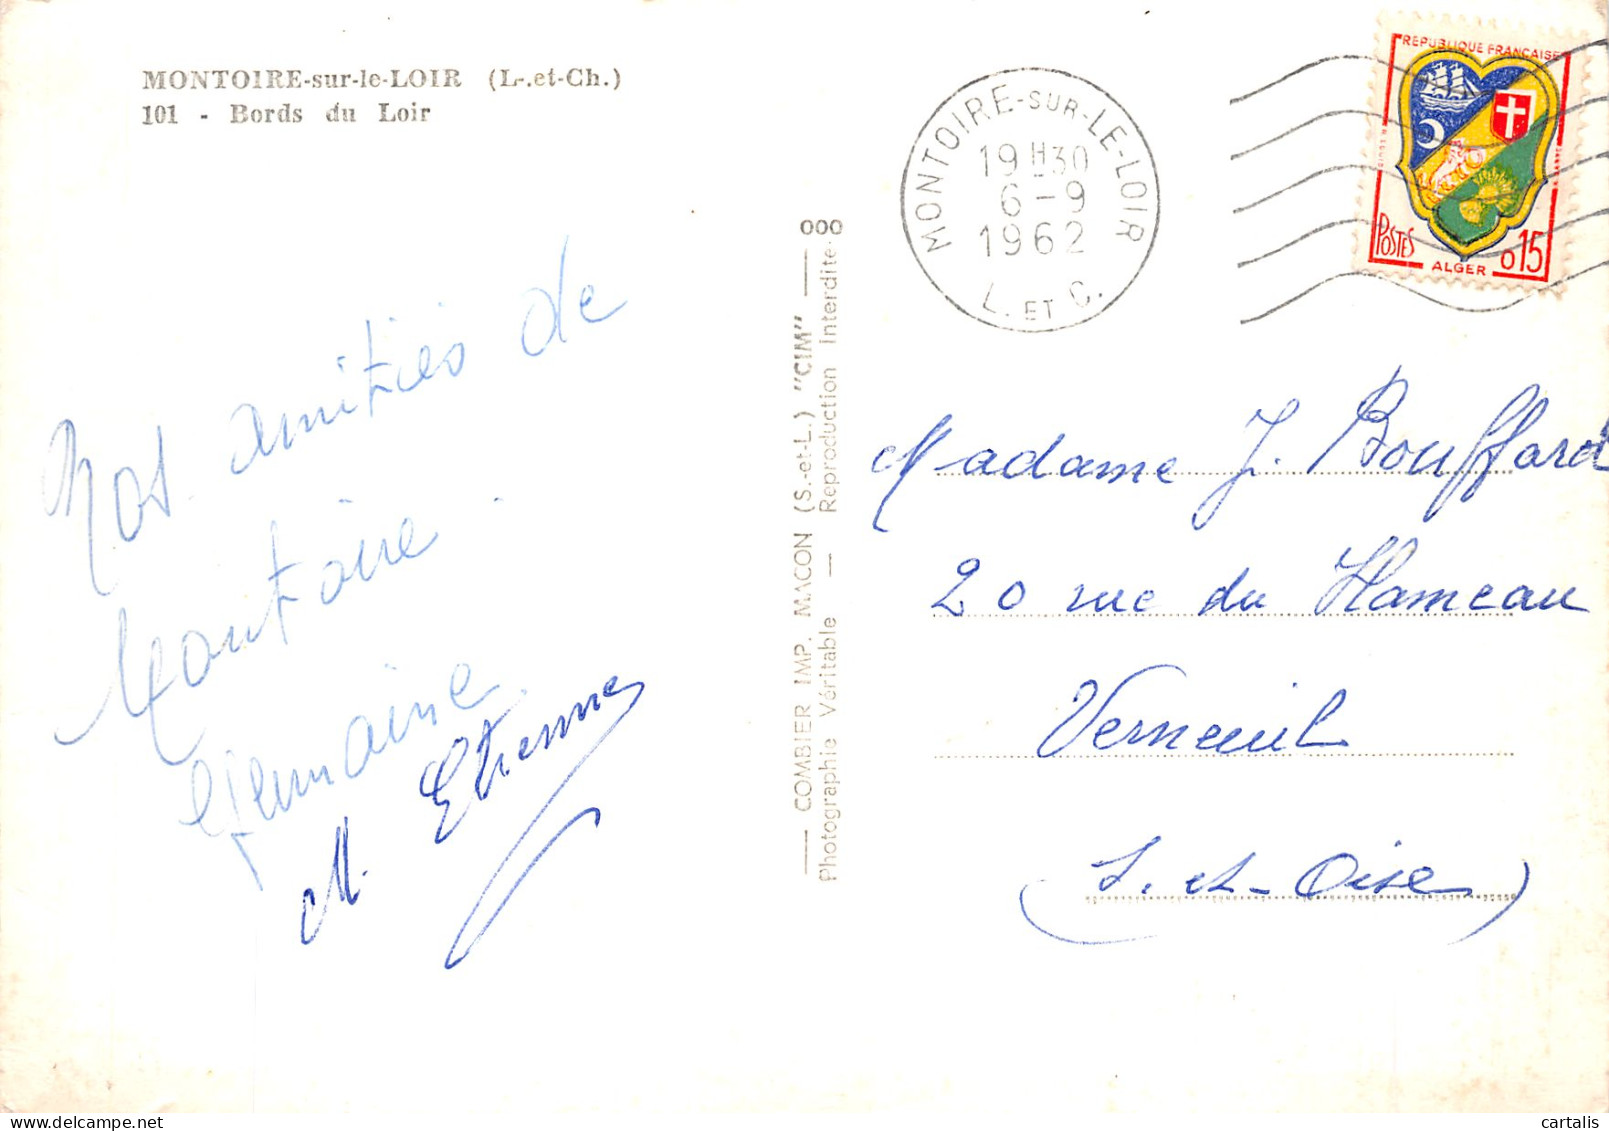 MONTOIRE-sur-le-LOIR (L.-et-Ch.)
101 - Bords du Loir
Nos amitiés de
Montoire.
Germaine
M. Etienne
000
COMBIER IMP. MACON (S.-et-L.) "CIM"
Photographie Véritable — Reproduction Interdite
MONTOIRE-SUR-LE-LOIR
19H30
6-9
1962
L. ET C.
REPUBLIQUE FRANÇAISE
POSTES
ALGER
0,15
Madame J. Bouffard
20 rue du Hameau
Verneuil
(S. et Oise)
cartalis